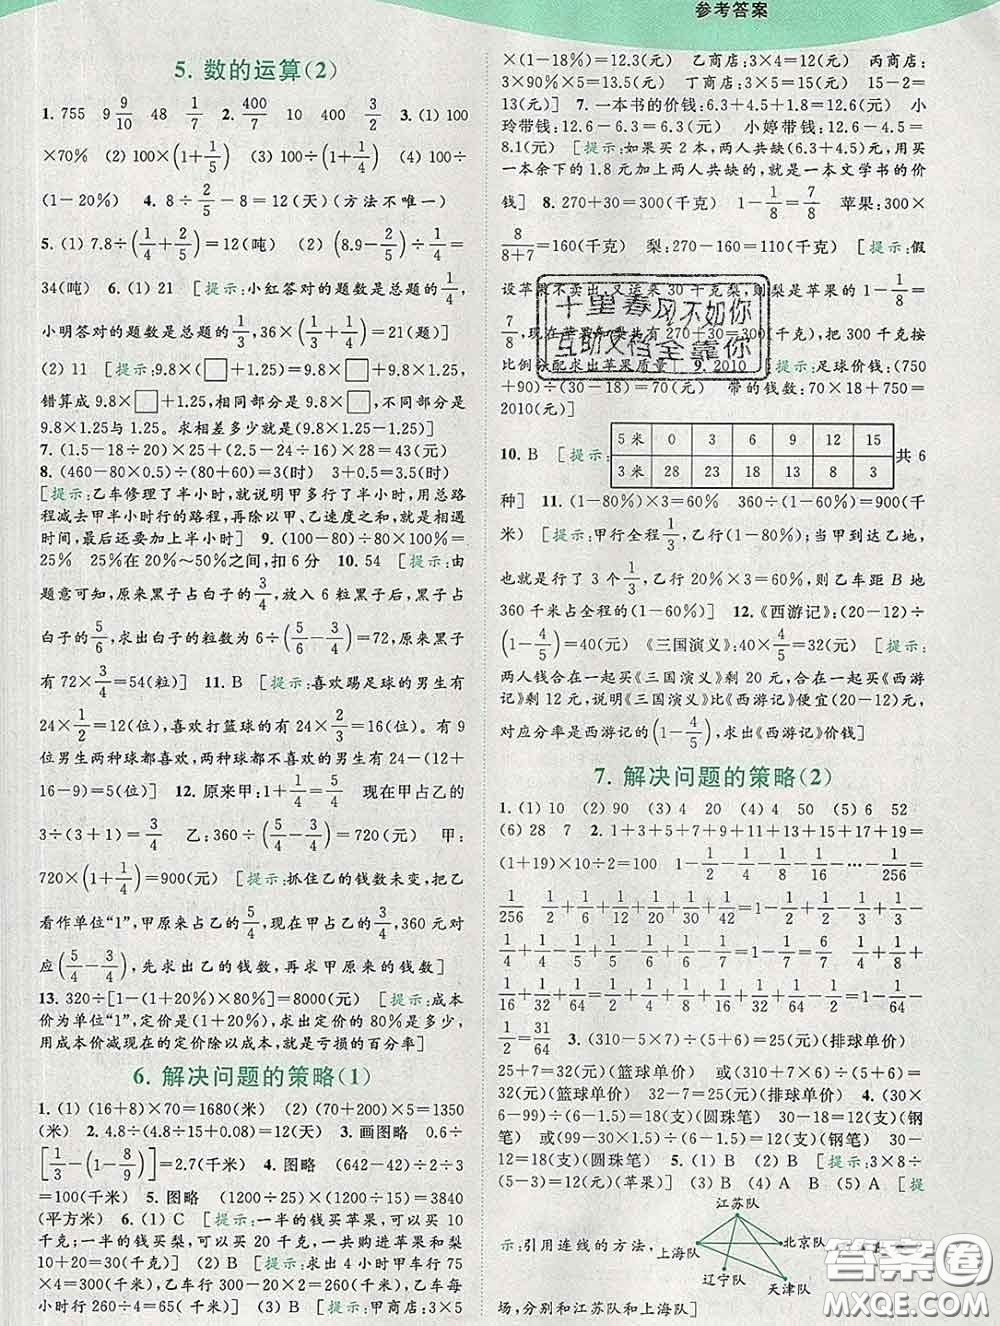 参考答案
5. 数的运算(2)
1. 755 9 9/10 48 1/7 2. 400/7 10 400 3/2 3. (1) 100
×70% (2) 100×(1+1/5) (3) 100÷(1+1/4) (4) 100÷
(1-20%) 4. 8÷2/5-8=12(天)(方法不唯一)
5. (1) 7.8÷(1/4+2/5)=12(吨) (2) (8.9-2/5)÷1/4=
34(吨) 6. (1) 21 [提示:小红答对的题数是总题的1/4,
小明答对的题数是总题的1/3,36×(1/4+1/3)=21(题)]
(2) 11 [提示:9.8×(□+1.25)=9.8×□+9.8×1.25,
错算成9.8×□+1.25,相同部分是9.8×□,不同部分是
9.8×1.25与1.25。求相差多少就是(9.8×1.25-1.25)]
7. (1.5-18÷20)×25+(2.5-24÷16)×28=43(元)
8. (460-80×0.5)÷(80+60)=3(时) 3+0.5=3.5(时)
[提示:乙车修理了半小时,就说明甲多行了半小时,用总路
程减去甲半小时行的路程,再除以甲、乙速度之和,就是相遇
时间,最后还要加上半小时] 9. (100-80)÷80×100%=
25% 25%在20%~50%之间,扣6分 10. 54 [提示:由
题意可知,原来黑子占白子的3/4,放入6粒黑子后,黑子占
白子的5/6,求出白子的粒数为6÷(5/6-3/4)=72,原来黑子
有72×3/4=54(粒)] 11. B [提示:喜欢踢足球的男生有
24×1/2=12(位),喜欢打篮球的有24×2/3=16(位)。有9
位男生两种球都喜欢,两种球都不喜欢的有24-(12+
16-9)=5(位)] 12. 原来甲:1+1/4=5/4 现在甲占乙的
3÷(3+1)=3/4 乙:360÷(5/4-3/4)=720(元) 甲:
720×(1+1/4)=900(元) [提示:抓住乙的钱数未变,把乙
看作单位“1”,甲原来占乙的5/4,现在占乙的3/4,360元对
应(5/4-3/4),先求出乙的钱数,再求出甲原来的钱数]
13. 320÷[1-(1+20%)×80%]=8000(元) [提示:成本
价为单位“1”,定价是(1+20%),求出定价的80%是多少,
用成本价减现在的定价除以成本,就是亏损的百分率]
6. 解决问题的策略(1)
1. (1) (16+8)×70=1680(米) (2) (70+200)×5=1350
(米) 2. 4.8÷(4.8÷15+0.08)=12(天) 3. 画图略 0.6÷
[1/3-(1-8/9)]=2.7(千米) 4. 图略 (642-42)÷2÷3
=100(千米) 5. 图略 (1200÷25)×(1200÷15)=3840
(平方米) 6. (1) C [提示:一半的钱买苹果,可以买10
千克;一半的钱买梨,可以买20千克,一共购进苹果和梨
10+20=30(千克)] (2) B [提示:求出4小时甲车行
4×75=300(千米),乙车行300-20×2=260(千米),乙车每
小时行260÷4=65(千米)] (3) B [提示:甲商店:3×5
×(1-18%)=12.3(元) 乙商店:3×4=12(元) 丙商店:
3×90%×5=13.5(元) 丁商店:3×4=12(元) 15-2=
13(元)] 7. 一本书的价钱:6.3+4.5+1.8=12.6(元) 小
玲带钱:12.6-6.3=6.3(元) 小婷带钱:12.6-4.5=
8.1(元) [提示:如果买2本,两人共缺(6.3+4.5)元,用买
一本余下的1.8元加上两人共缺的,就是一本文学书的价
钱] 8. 270+30=300(千克) 1-1/8=7/8 苹果:300×
8/(8+7)=160(千克) 梨:270-160=110(千克) [提示:假
设苹果不卖出,又运来30千克梨,则梨是苹果的1-1/8=
7/8,现在苹果和梨共有270+30=300(千克),把300千克按
比例分配求出苹果质量] 9. 2010 [提示:足球价钱:
(750+6)÷(60-18)=18(元) 带的钱数:70×18+750=
2010(元)]
10. B [提示: 5米 0 3 6 9 12 15 共6
3米 28 23 18 13 8 3
种] 11. (1-80%)×3=60% 360÷(1-60%)=900(千
米) [提示:甲行全程1/3,乙行(1-80%);当甲到达乙地,
也就是行了3个1/3,乙行20%×3=60%,则乙车距B地
360千米占全程的(1-60%)] 12. 《西游记》:(20-12)÷
(1-4/5)=40(元) 《三国演义》:40×4/5=32(元) [提示:
两人钱合在一起买《三国演义》剩20元,合在一起买《西游
记》剩12元,说明《三国演义》比《西游记》便宜(20-12)元,
对应分率是西游记的(1-4/5),求出《西游记》价钱]
7. 解决问题的策略(2)
1. (1) 10 (2) 90 (3) 4 20 (4) 4 (5) 6 52
(6) 28 7 2. 1+3+5+7+9+11+13+15+17+19=
(1+19)×10÷2=100 1-1/2-1/4-1/8-1/16-…-1/256=
1/256 1/2+1/6+1/12+1/20+1/30+1/42=1-1/2+1/2-1/3+1/3-
1/4+1/4-1/5+1/5-1/6+1/6-1/7=1-1/7=6/7 1/4+1/8+
1/16+1/32+1/64=1-1/2+1/2-1/4+1/4-1/8+1/8-1/16+1/16-1/32+1/32-1/64-
1/2=31/64 3. (310-5×7)÷(5+6)=25(元)(排球单价)
25+7=32(元)(篮球单价) 或(310+7×6)÷(5+6)=
32(元)(篮球单价) 32-7=25(元)(排球单价) 4. (30
×6-99)÷(6-1.5)=18(支)(圆珠笔) 30-18=12(支)(钢
笔) 或(99-30×1.5)÷(6-1.5)=12(支)(钢笔) 30-
12=18(支)(圆珠笔) 5. (1) B (2) B [提示:3×8÷
(3-1)=12(元)(苹果)] (3) B (4) B (5) A [提
示:引用连线的方法,
江苏队
上海队
北京队
辽宁队
天津队
场,分别和江苏队和上海队]
十里春风不如你
互助文档全靠你
答案圈
MXQE.COM